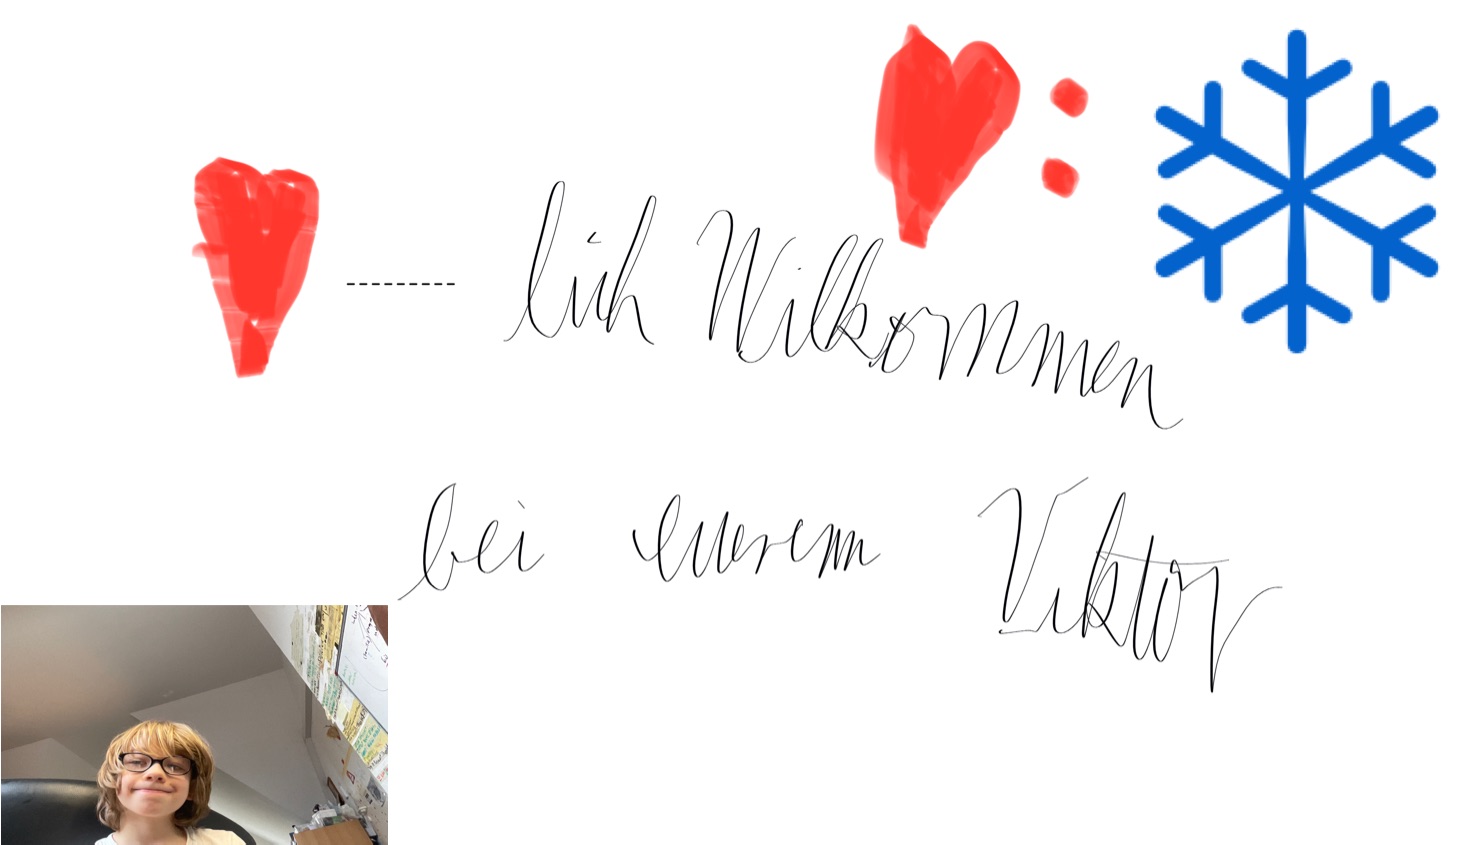 -------- lich Wilkommen
bei eurem Viktor